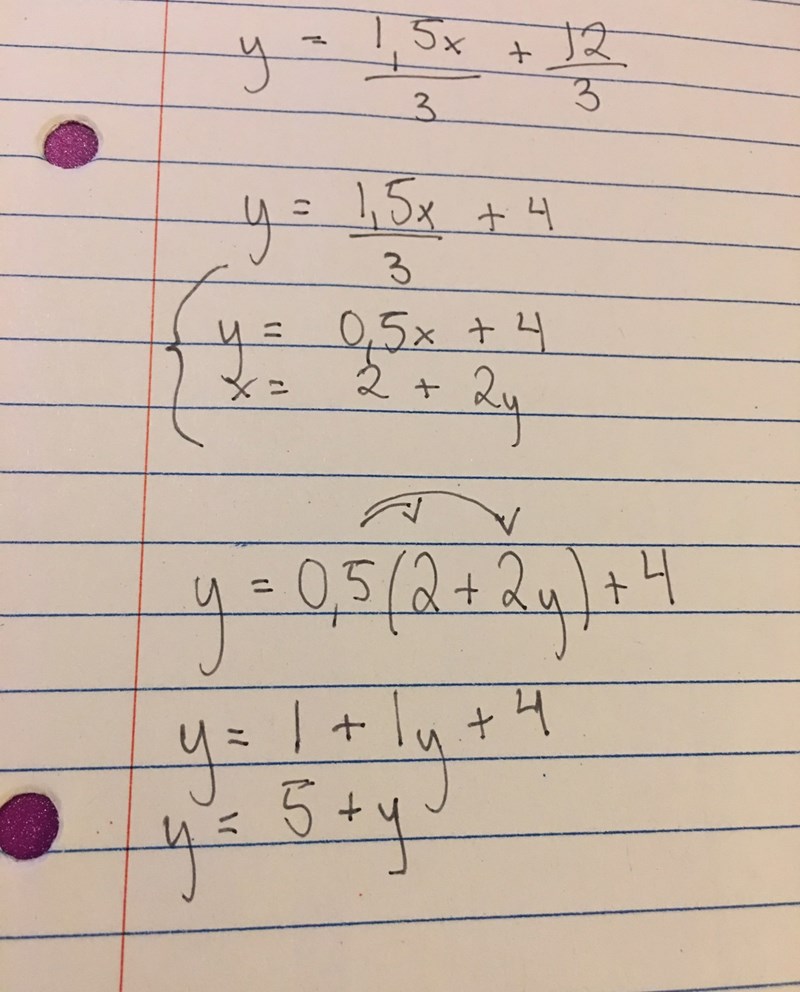 y = 1,5x/3 + 12/3
y = 1,5x/3 + 4
y = 0,5x + 4
x = 2 + 2y
y = 0,5(2 + 2y) + 4
y = 1 + 1y + 4
y = 5 + y